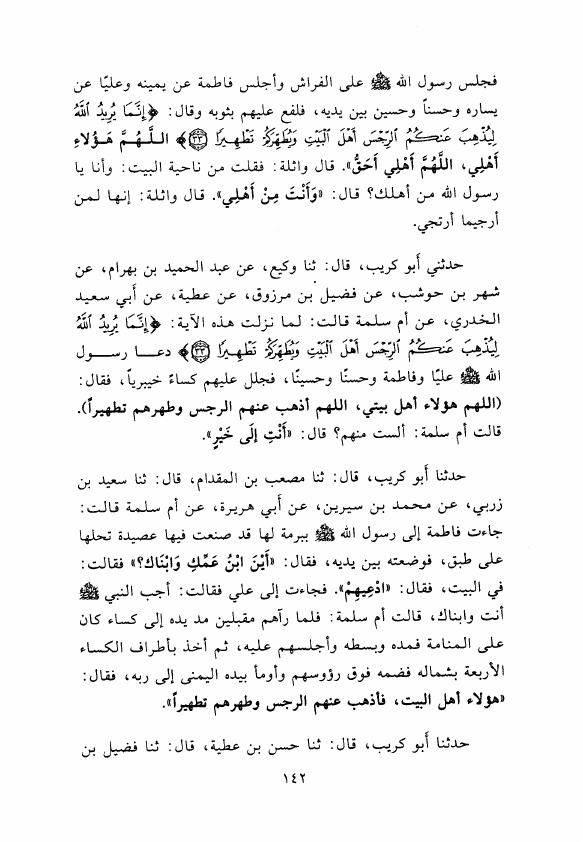 فجلس رسول الله ﷺ على الفراش وأجلس فاطمة عن يمينه وعليًا عن
يساره وحسناً وحسين بين يديه، فلفع عليهم بثوبه وقال: ﴿إِنَّمَا يُرِيدُ ٱللَّهُ
لِيُذْهِبَ عَنكُمُ ٱلرِّجْسَ أَهْلَ ٱلْبَيْتِ وَيُطَهِّرَكُمْ تَطْهِيرًا ۝٣٣﴾ اللَّهُمَّ هَؤُلَاءِ
أَهْلِي، اللَّهُمَّ أَهْلِي أَحَقُّ». قال واثلة: فقلت من ناحية البيت: وأنا يا
رسول الله من أهلك؟ قال: «وَأَنْتَ مِنْ أَهْلِي». قال واثلة: إنها لمن
أرجيما أرتجي.
حدثني أبو كريب، قال: ثنا وكيع، عن عبد الحميد بن بهرام، عن
شهر بن حوشب، عن فضيل بن مرزوق، عن عطية، عن أبي سعيد
الخدري، عن أم سلمة قالت: لما نزلت هذه الآية: ﴿إِنَّمَا يُرِيدُ ٱللَّهُ
لِيُذْهِبَ عَنكُمُ ٱلرِّجْسَ أَهْلَ ٱلْبَيْتِ وَيُطَهِّرَكُمْ تَطْهِيرًا ۝٣٣﴾ دعا رسول
الله ﷺ عليًا وفاطمة وحسنًا وحسينًا، فجلل عليهم كساءً خيبرياً، فقال:
(اللهم هؤلاء أهل بيتي، اللهم أذهب عنهم الرجس وطهرهم تطهيراً).
قالت أم سلمة: ألست منهم؟ قال: «أَنْتِ إِلَى خَيْرٍ».
حدثنا أبو كريب، قال: ثنا مصعب بن المقدام، قال: ثنا سعيد بن
زربي، عن محمد بن سيرين، عن أبي هريرة، عن أم سلمة قالت:
جاءت فاطمة إلى رسول الله ﷺ ببرمة لها قد صنعت فيها عصيدة تحلها
على طبق، فوضعته بين يديه، فقال: «أَيْنَ ابْنُ عَمِّكِ وَابْنَاك؟» فقالت:
في البيت، فقال: «ادْعِيهِمْ». فجاءت إلى علي فقالت: أجب النبي ﷺ
أنت وابناك، قالت أم سلمة: فلما رآهم مقبلين مد يده إلى كساء كان
على المنامة فمده وبسطه وأجلسهم عليه، ثم أخذ بأطراف الكساء
الأربعة بشماله فضمه فوق رؤوسهم وأومأ بيده اليمنى إلى ربه، فقال:
«هؤلاء أهل البيت، فأذهب عنهم الرجس وطهرهم تطهيراً».
حدثنا أبو كريب، قال: ثنا حسن بن عطية، قال: ثنا فضيل بن
١٤٢